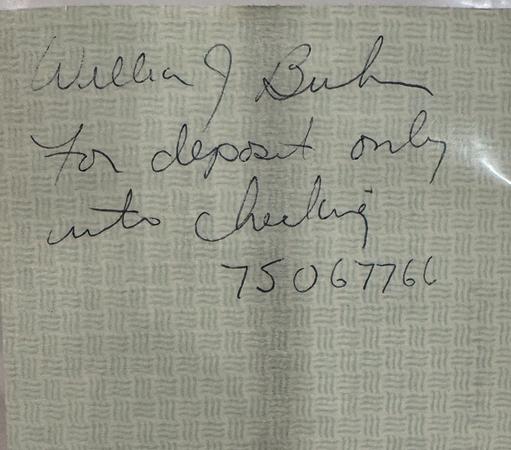 William J
For deposit only
into checking
75067766